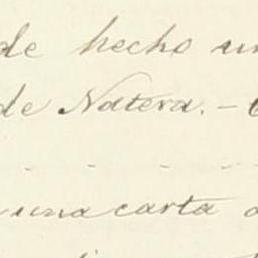 de hecho un
de Natera. -
una carta